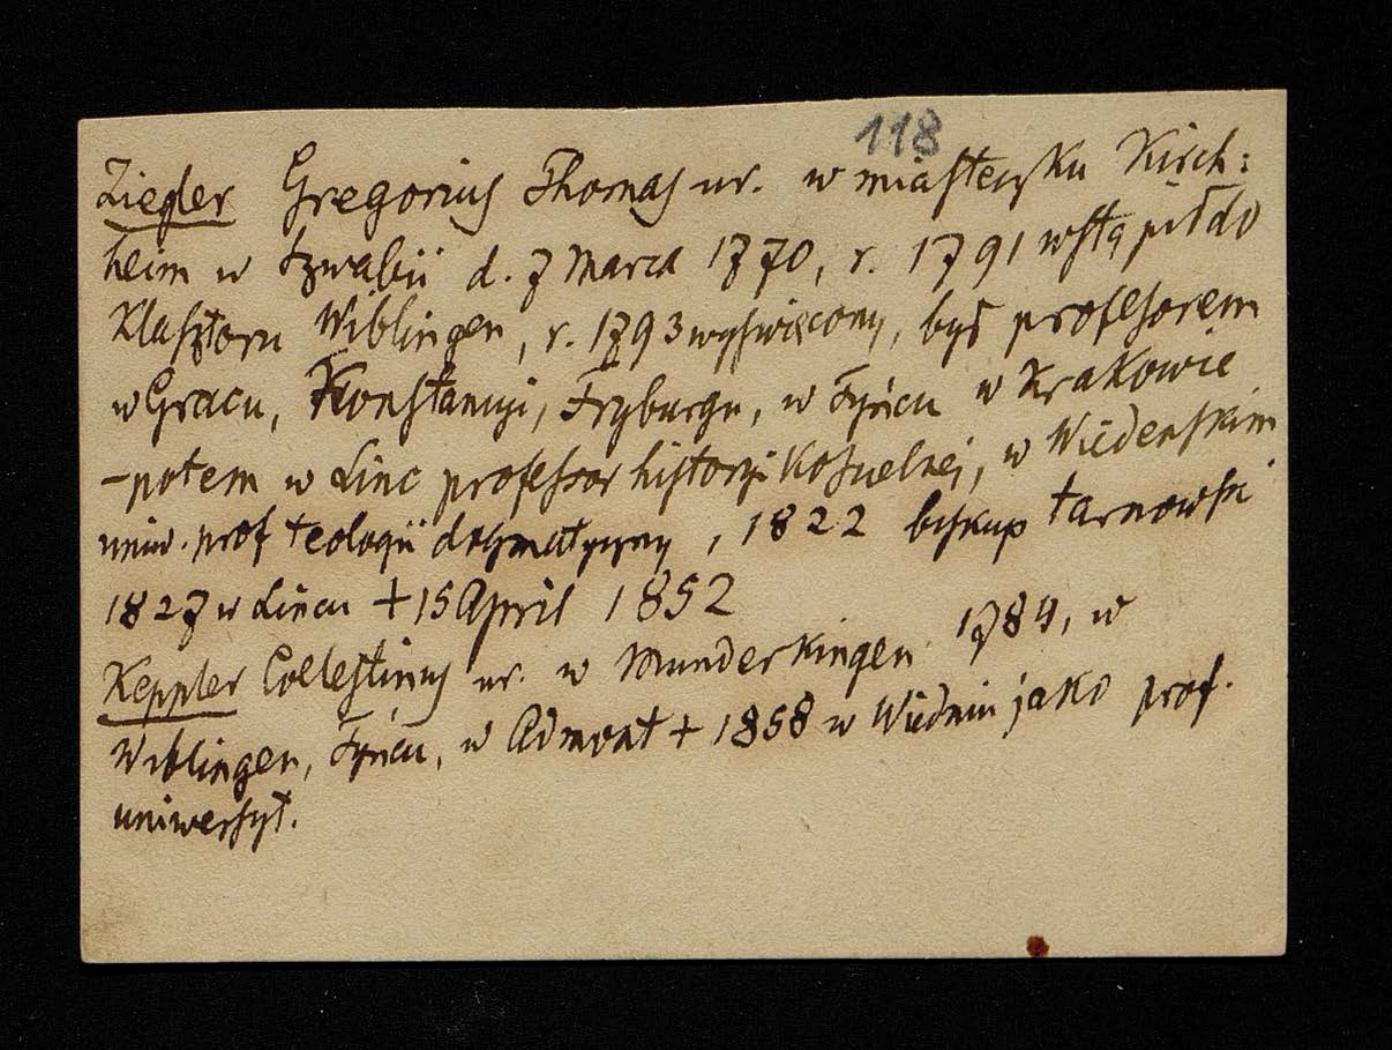 118
Ziegler Gregorius Thomas ur. w miasteczku Kirch:
heim w Szwabii d. 7 Marca 1770, r. 1791 wstąpił do
Klasztoru Wiblingen, r. 1793 wyświęcony, był profesorem
w Gracu, Konstancyi, Fryburgu, w Tyńcu w Krakowie
– potem w Linc professor historyi Kościelnej, w Wiedeńskim
uniw. prof teologii dogmatycznej, 1822 biskup tarnowski
1827 w Lincu + 15 April 1852
Keppler Coelestinus ur. w Munderkingen 1784, w
Wiblingen, Tyńcu, w Admont + 1858 w Wiedniu jako prof.
uniwersyt.